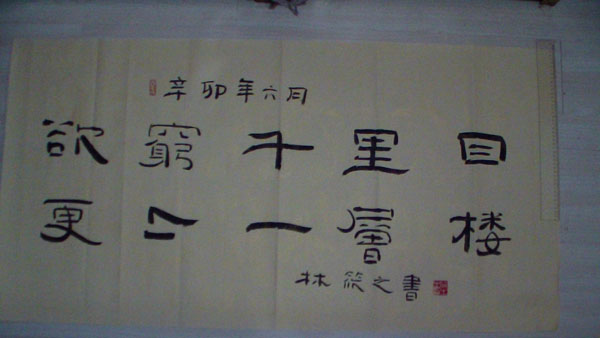 辛卯年六月
欲窮千里目
更上一層楼
林之書